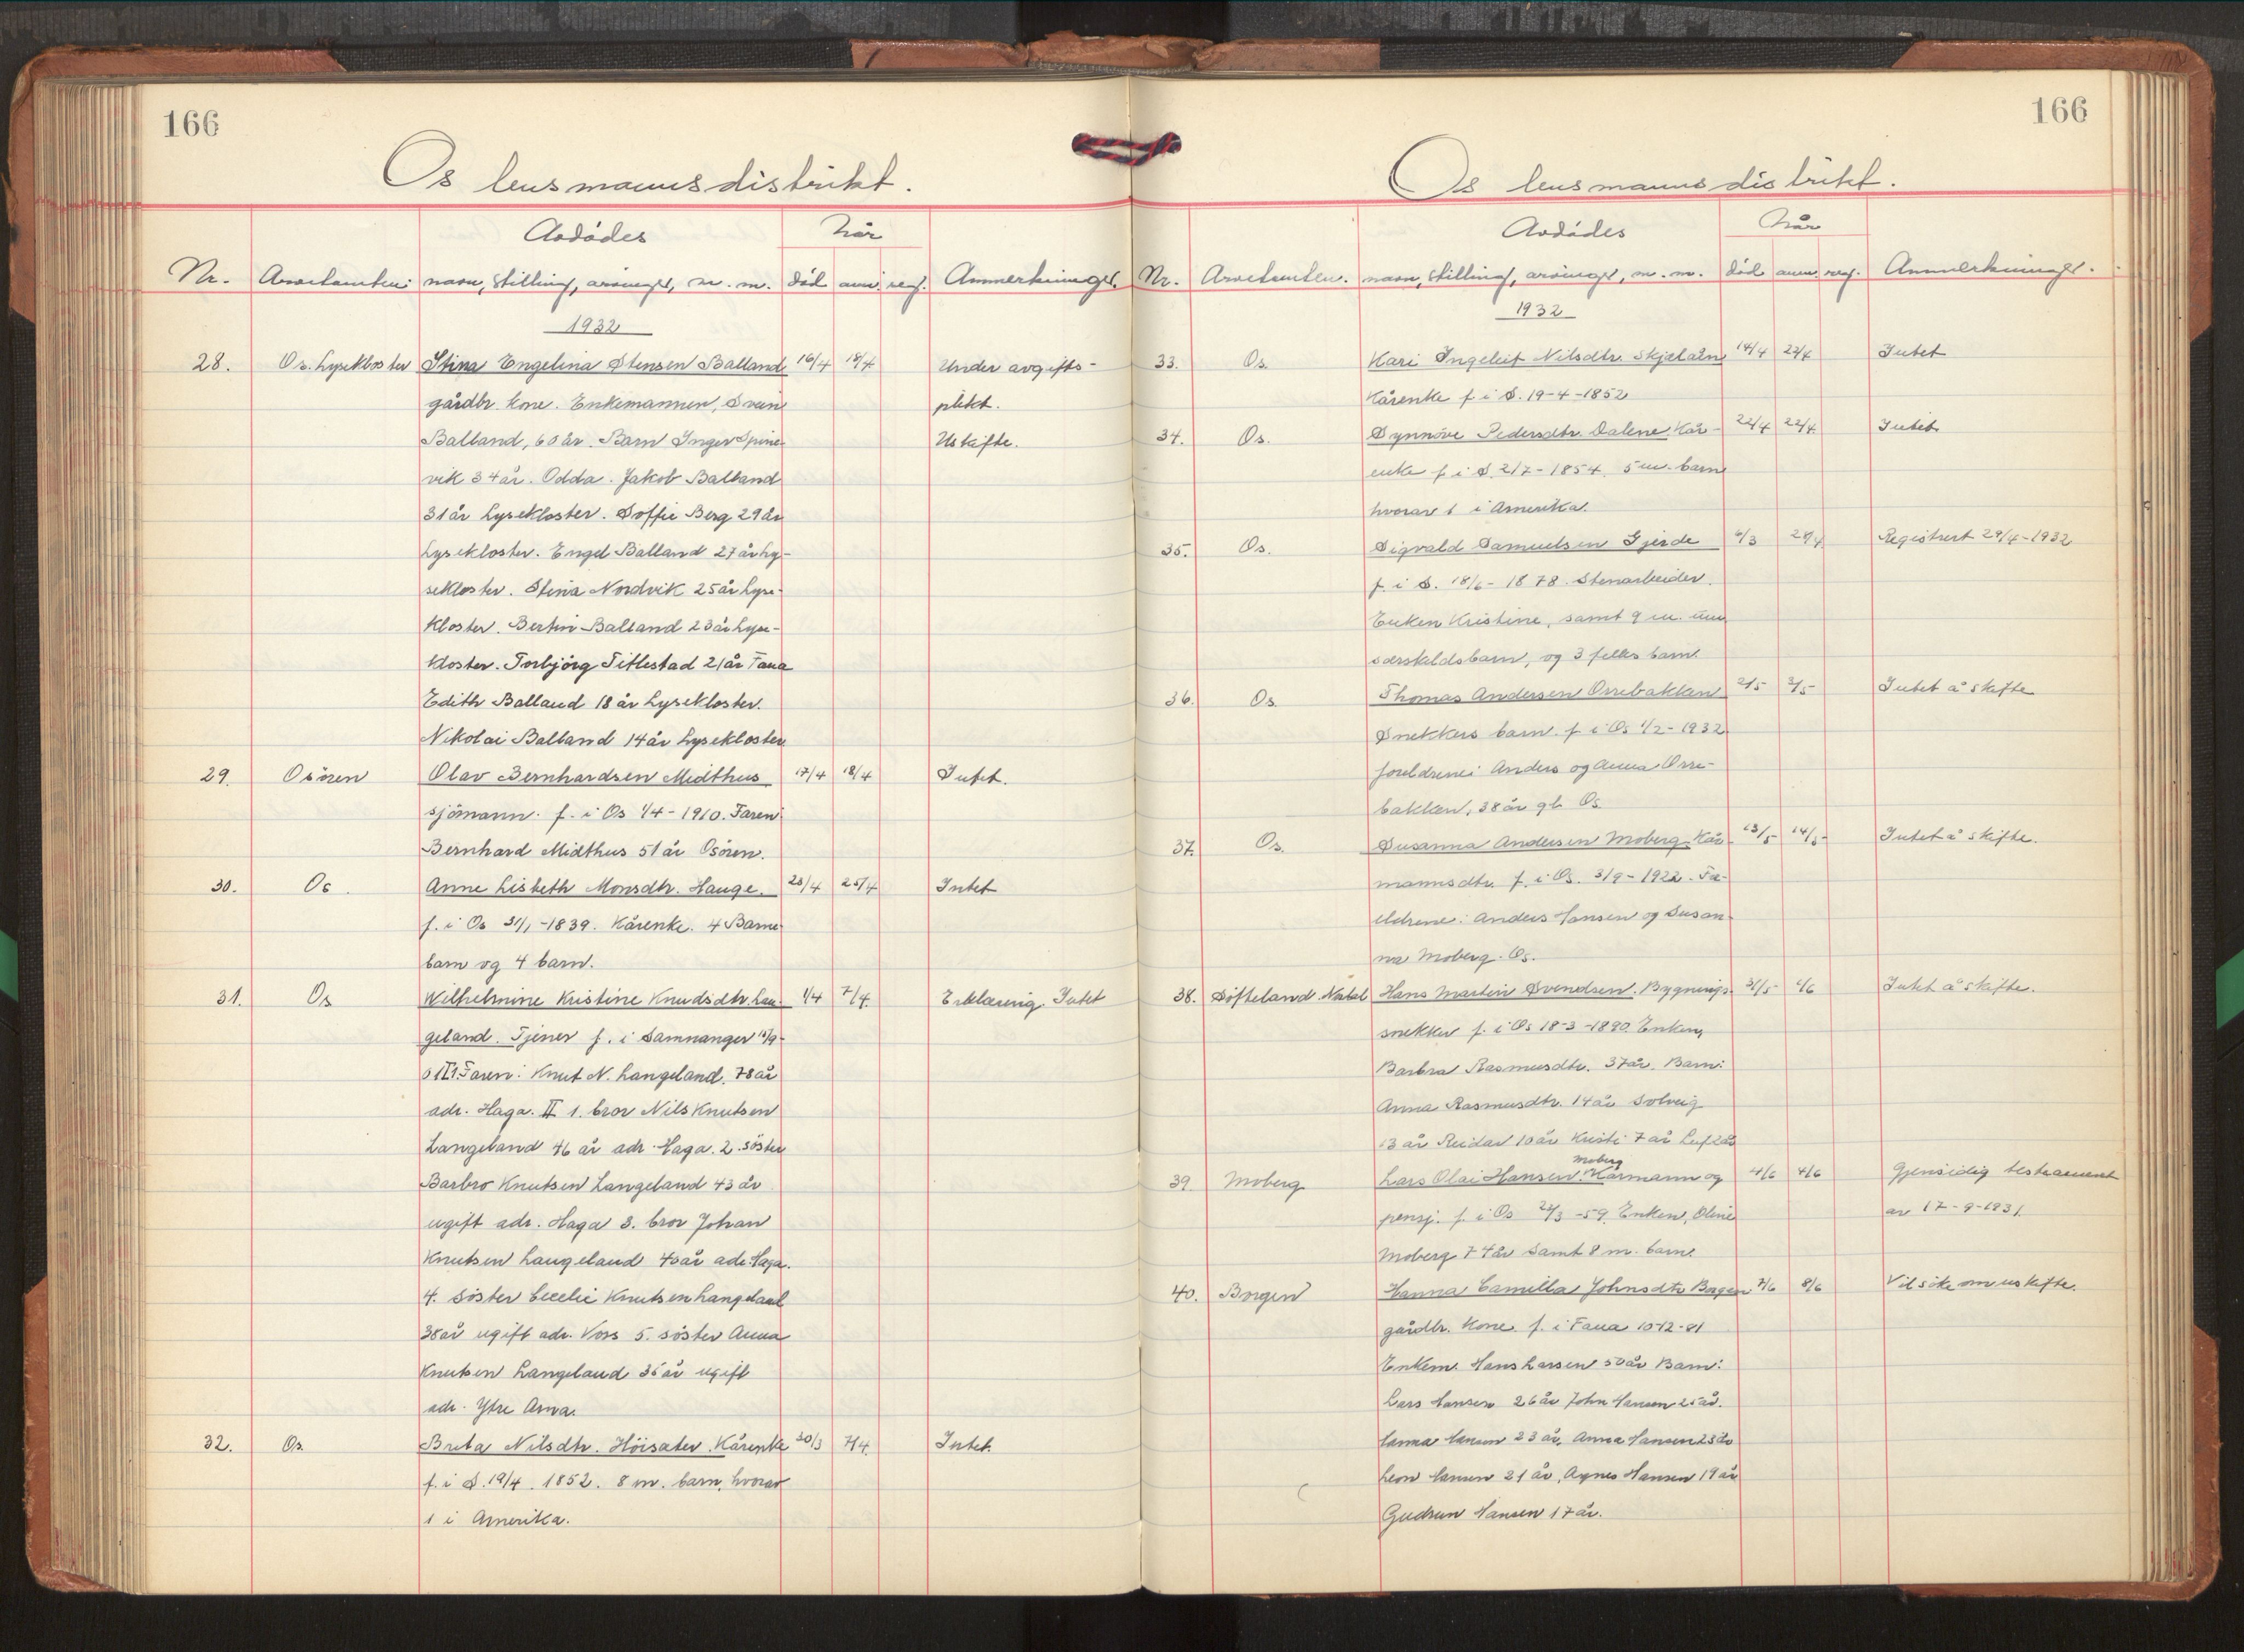 166
Os lensmannsdistrikt.
Avdödes
Når
Nr. Anmeldt navn, stilling, arvinger, m. m. död anm. reg. Anmerkninger.
1932
28. Os. Lysekloster Stina Engelina Stensen Balland 16/4 18/4 Under avgifts-
gårdbr. kone. Enkemannen, Svein plikt.
Balland, 60 år. Barn Inger Spine- Uskifte.
vik 34 år. Odda. Jakob Balland
31 år Lysekloster. Soffie Berg 29 år
Lysekloster. Engel Balland 27 år Ly-
sekloster. Stina Nordvik 25 år Lyse-
kloster. Bertin Balland 23 år Lyse-
kloster. Torbjörg Titlestad 21 år Fana
Edith Balland 18 år Lysekloster.
Nikolai Balland 14 år Lysekloster
29. Osören Olav Bernhardsen Midthus 17/4 18/4 Intet.
sjömann. f. i Os 1/4-1910. Faren:
Bernhard Midthus 51 år Osören.
30. Os. Anne Lisbeth Monsdtr. Hauge. 23/4 25/4 Intet
f. i Os 31/1-1839. Kårenke. 4 Barne-
barn og 4 barn.
31. Os Wilhelmine Kristine Knudsdtr. Lan- 1/4 7/4 Erklæring. Intet
geland. Tjener f. i Samnanger 10/9-
Faren: Knut N. Langeland. 78 år
adr. Haga. II 1. bror Nils Knutsen
Langeland 46 år adr. Haga. 2. söster
Barbro Knutsen Langeland 43 år
ugift adr. Haga 3. bror Johan
Knutsen Langeland 40 år adr. Haga.
4. söster Cecelie Knutsen Langeland
38 år ugift adr. Voss 5. söster Anna
Knutsen Langeland 35 år ugift
adr. Ytre Arna.
32. Os. Brita Nilsdtr. Höisæter. Kårenke 30/3 7/4. Intet.
f. i S. 19/4. 1852. 8 m. barn, hvorav
1 i Amerika.
166
Os lensmannsdistrikt.
Avdödes
Når
Nr. navn, stilling, arvinger, m. m. död anm. reg. Anmerkninger.
1932
33. Os. Kari Ingeleif Nilsdtr. Skjelån 14/4 22/4 Intet
Kårenke f i S. 19-4-1852
34. Os. Synnöve Pedersdtr. Dalene. Kår- 22/4 22/4 Intet
enke f i S. 2/7-1854. 5 m. barn
hvorav 1 i Amerika.
35. Os. Sigvald Samuelsen Gjerde 6/3 29/4 Registrert 29/4-1932
f. i S. 18/6-1878. Stenarbeider.
Enken Kristine, samt 9 m. um
særskeldsbarn, og 3 felles barn.
36. Os. Thomas Andersen Orrebakken 2/5 3/5 Intet å skifte
Snekkers barn. f i Os 1/2-1932
foreldrene: Anders og Anna Orre-
bakken, 38 år gl. Os.
37. Os. Susanna Andersen Moberg. Kår- 13/5 14/5 Intet å skifte.
mannsdtr. f. i Os. 3/9-1922. Fo-
eldrene: Anders Hansen og Susan-
na Moberg. Os.
38. Söfteland Natal Hans Martin Svendsen. Bygnings- 31/5 1/6 Intet å skifte.
snekker f. i Os 18-3-1890. Enken,
Barbra Rasmusdtr. 37 år. Barn:
Anna Rasmusdtr. 14 år Solveig
13 år Reidar 10 år Kristi 7 år Leif 2 år
Moberg
39. Moberg Lars Olai Hansen. Kårmann og 4/6 4/6 Gjensidig testament
pensj. f. i Os 24/3-59. Enken, Oline av 17-9-1931.
Moberg 74 år samt 8 m. barn.
40. Borgen Hanna Camilla Johnsdtr Borgen 7/6 8/6 Vil söke om uskifte.
gårdbr. kone. f. i Fana 10-12-81
Enkem. Hans Larsen 50 år Barn:
Lars Hansen 26 år John Hansen 25 år.
Hanna Hansen 23 år, Anna Hansen 23 do
Leon Hansen 21 år, Agnes Hansen 19 år
Gudrun Hansen 17 år.